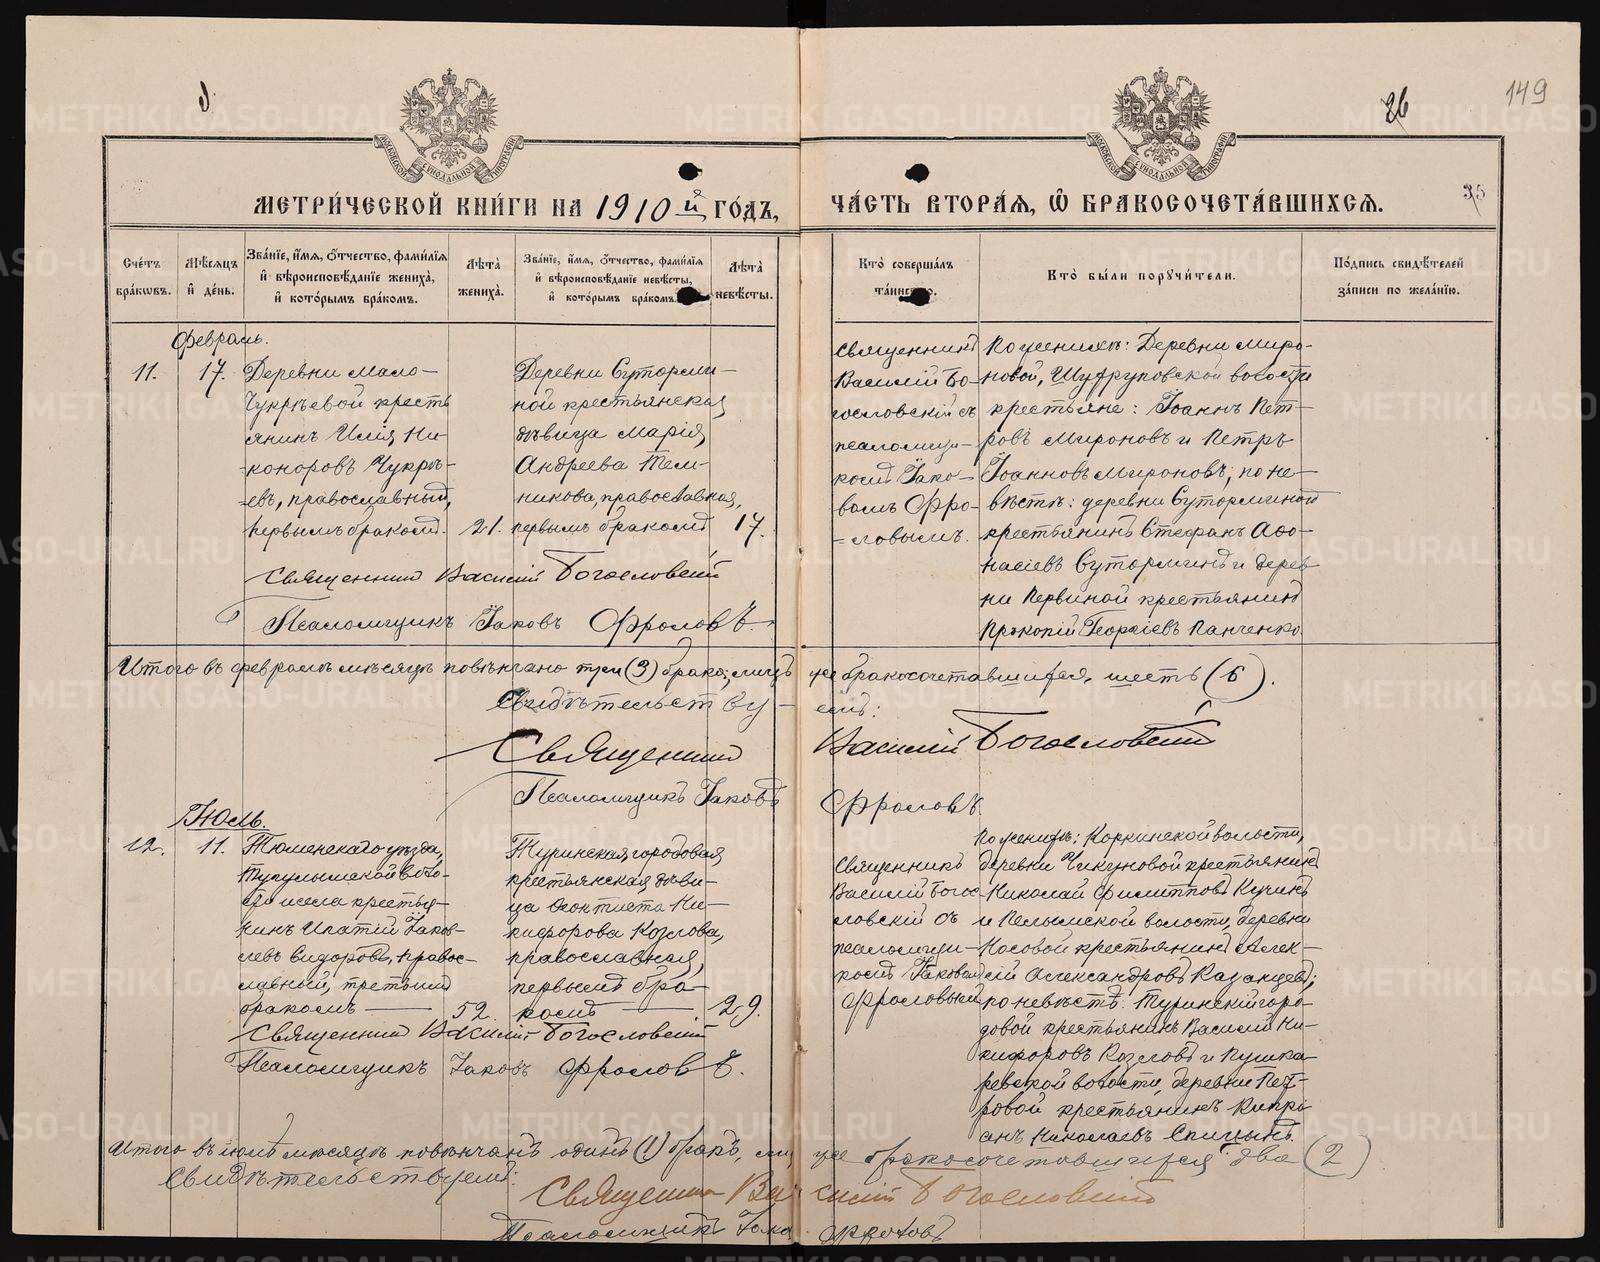 149
МЕТРИ́ЧЕСКОЙ КНИ́ГИ НА 1910 й ГО́ДЪ,
ЧА́СТЬ ВТОРА́Я, Ѡ БРАКОСОЧЕТА́ВШИХСЯ.
35
Сче́тъ бра́ковъ.
Мѣ́сяцъ и́ де́нь.
Зва́нїе, и́мя, о́тчество, фами́лїя и́ вѣроисповѣ́данїе жениха̀, и́ кото́рымъ бра́комъ.
Лѣ́та̀ жениха̀.
Зва́нїе, и́мя, о́тчество, фами́лїя и́ вѣроисповѣ́данїе невѣ́сты, и́ кото́рымъ бра́комъ.
Лѣ́та̀ невѣ́сты.
Кто̀ соверша́лъ та́инство.
Кто̀ бы́ли поручи́тели.
По́дпись свидѣ́телей за́писи по жела́нїю.
Февраль.
11.
17.
Деревни Мало-
Чукрѣевой кресть
янинъ Илія Ни-
коноровъ Чукрѣ-
евъ, православный,
первымъ бракомъ.
21.
Деревни Сутормин-
ной крестьянская
дѣвица Марія
Андреева
православная,
первымъ бракомъ
17.
Священникъ
Василій Бо-
гословскій съ
псаломщи-
комъ Іако-
вомъ Фро-
ловымъ.
По женихѣ: Деревни Миро-
новой, волости
крестьяне: Іоаннъ Пет-
ровъ Мироновъ и Петръ
Іоанновъ Мироновъ; по не-
вѣстѣ: деревни Суторминой
крестьянинъ Стефанъ Афо-
насіевъ Суторминъ и дерев
ни Первиной крестьянинъ
Прокопій Георгіевъ Панченко.
Священникъ Василій Богословскій
Псаломщикъ Іаковъ Фроловъ.
Итого въ февралѣ мѣсяцѣ повѣнчано три (3) брака; лицъ же бракосочетавшихся шесть (6).
Свидѣтельству-емъ:
Священникъ Василій Богословскій
Псаломщикъ Іаковъ Фроловъ
Іюль.
12.
11.
Тюменскаго уѣзда,
Тугулымской воло-
сти и села крестья-
нинъ Ипатій Іаков-
левъ Сидоровъ, правос-
лавный, третьимъ
бракомъ
52.
Туринская городовая
крестьянская дѣви-
ца Феоктиста Ни-
кифорова Козлова,
православная,
первымъ бра-
комъ
29.
Священникъ
Василій Богос-
ловскій съ
псаломщи-
комъ Іаковомъ
Фроловымъ
По женихѣ: Коркинской волости,
деревни Чикуновой крестьянинъ
Николай Филипповъ Кучинъ
и Пелымской волости, деревни
Носовой крестьянинъ Алек-
сій Александровъ Казанцевъ;
по невѣстѣ: Туринскій горо-
довой крестьянинъ Василій Ни-
кифоровъ Козловъ и Пушка-
ревской волости, деревни Пет-
ровой крестьянинъ Кипрі-
анъ Николаевъ Спицынъ.
Священникъ Василій Богословскій
Псаломщикъ Іаковъ Фроловъ.
Итого въ іюлѣ мѣсяцѣ повѣнчанъ одинъ (1) бракъ, лицъ же бракосочетавшихся два (2)
Свидѣтельствуемъ:
Священникъ Василій Богословскій
Псаломщикъ Іаковъ Фроловъ
METRIKI.GASO-URAL.RU